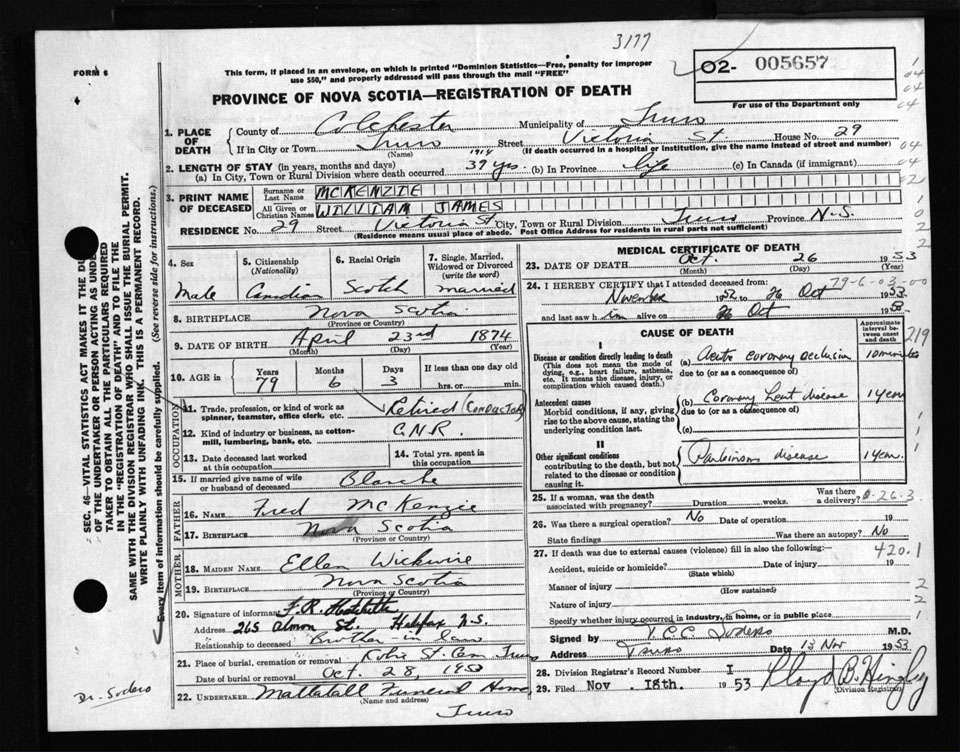 3177
FORM 6
This form, if placed in an envelope, on which is printed "Dominion Statistics—Free, penalty for improper
use $50," and properly addressed will pass through the mail "FREE"
02- 005657
For use of the Department only
PROVINCE OF NOVA SCOTIA—REGISTRATION OF DEATH
1. PLACE OF DEATH
County of Colchester Municipality of Truro
If in City or Town Truro Street Victoria St. House No. 29
(Name) (If death occurred in a hospital or institution, give the name instead of street and number)
2. LENGTH OF STAY (in years, months and days)
(a) In City, Town or Rural Division where death occurred 39 yrs (b) In Province life (c) In Canada (if immigrant)
3. PRINT NAME OF DECEASED
Surname or Last Name MCKENZIE
All Given or Christian Names WILLIAM JAMES
RESIDENCE No. 29 Street Victoria St City, Town or Rural Division Truro Province N.S.
(Residence means usual place of abode. Post Office Address for residents in rural parts not sufficient)
4. Sex
Male
5. Citizenship (Nationality)
Canadian
6. Racial Origin
Scotch
7. Single, Married, Widowed or Divorced (write the word)
married
8. BIRTHPLACE Nova Scotia
(Province or Country)
9. DATE OF BIRTH April 23rd 1874
(Month) (Day) (Year)
10. AGE in Years 79 Months 6 Days 3 If less than one day old hrs. or min.
OCCUPATION
11. Trade, profession, or kind of work as spinner, teamster, office clerk, etc. Retired (Conductor)
12. Kind of industry or business, as cotton-mill, lumbering, bank, etc. C.N.R.
13. Date deceased last worked at this occupation
14. Total yrs. spent in this occupation
15. If married give name of wife or husband of deceased Blanche
FATHER
16. NAME Fred McKenzie
17. BIRTHPLACE Nova Scotia
(Province or Country)
MOTHER
18. MAIDEN NAME Ellen Wickwire
19. BIRTHPLACE Nova Scotia
(Province or Country)
20. Signature of informant F.R.
Address 265 Almon St. Halifax N.S.
Relationship to deceased Brother-in-law
21. Place of burial, cremation or removal Robie St. Cem Truro
Date of burial or removal Oct. 28, 1953
22. UNDERTAKER Mattatall Funeral Home
(Name and address)
Truro
MEDICAL CERTIFICATE OF DEATH
23. DATE OF DEATH Oct. 26 1953
(Month) (Day) (Year)
24. I HEREBY CERTIFY that I attended deceased from: 79-6-03-00
November 1952 to 26 Oct 1953
and last saw him alive on 26 Oct
CAUSE OF DEATH
Approximate interval between onset and death
I
Disease or condition directly leading to death
(This does not mean the mode of dying, e.g., heart failure, asthenia, etc. It means the disease, injury, or complication which caused death.)
(a) Acute coronary occlusion 10 minutes
due to (or as a consequence of)
Antecedent causes
Morbid conditions, if any, giving rise to the above cause, stating the underlying condition last.
(b) Coronary heart disease 1 year
due to (or as a consequence of)
(c)
II
Other significant conditions
contributing to the death, but not related to the disease or condition causing it.
Parkinsons disease 1 year
25. If a woman, was the death associated with pregnancy? Duration weeks. Was there a delivery?
26. Was there a surgical operation? No Date of operation 19
State findings Was there an autopsy? No
27. If death was due to external causes (violence) fill in also the following:— 420.1
Accident, suicide or homicide? Date of injury 19
(State which)
Manner of injury
(How sustained)
Nature of injury
Specify whether injury occurred in industry, in home, or in public place
Signed by M.D.
Address Truro Date 13 Nov 1953
28. Division Registrar's Record Number I
29. Filed Nov. 18th. 1953 Lloyd B. Hingley
(Division Registrar)
SEC. 46—VITAL STATISTICS ACT MAKES IT THE DU
OF THE UNDERTAKER OR PERSON ACTING AS UNDE
TAKER TO OBTAIN ALL THE PARTICULARS REQUIRED
IN THE "REGISTRATION OF DEATH" AND TO FILE THE
SAME WITH THE DIVISION REGISTRAR WHO SHALL ISSUE THE BURIAL PERMIT.
WRITE PLAINLY WITH UNFADING INK. THIS IS A PERMANENT RECORD.
Every item of information should be carefully supplied. (See reverse side for instructions.)
Dr. Sodero